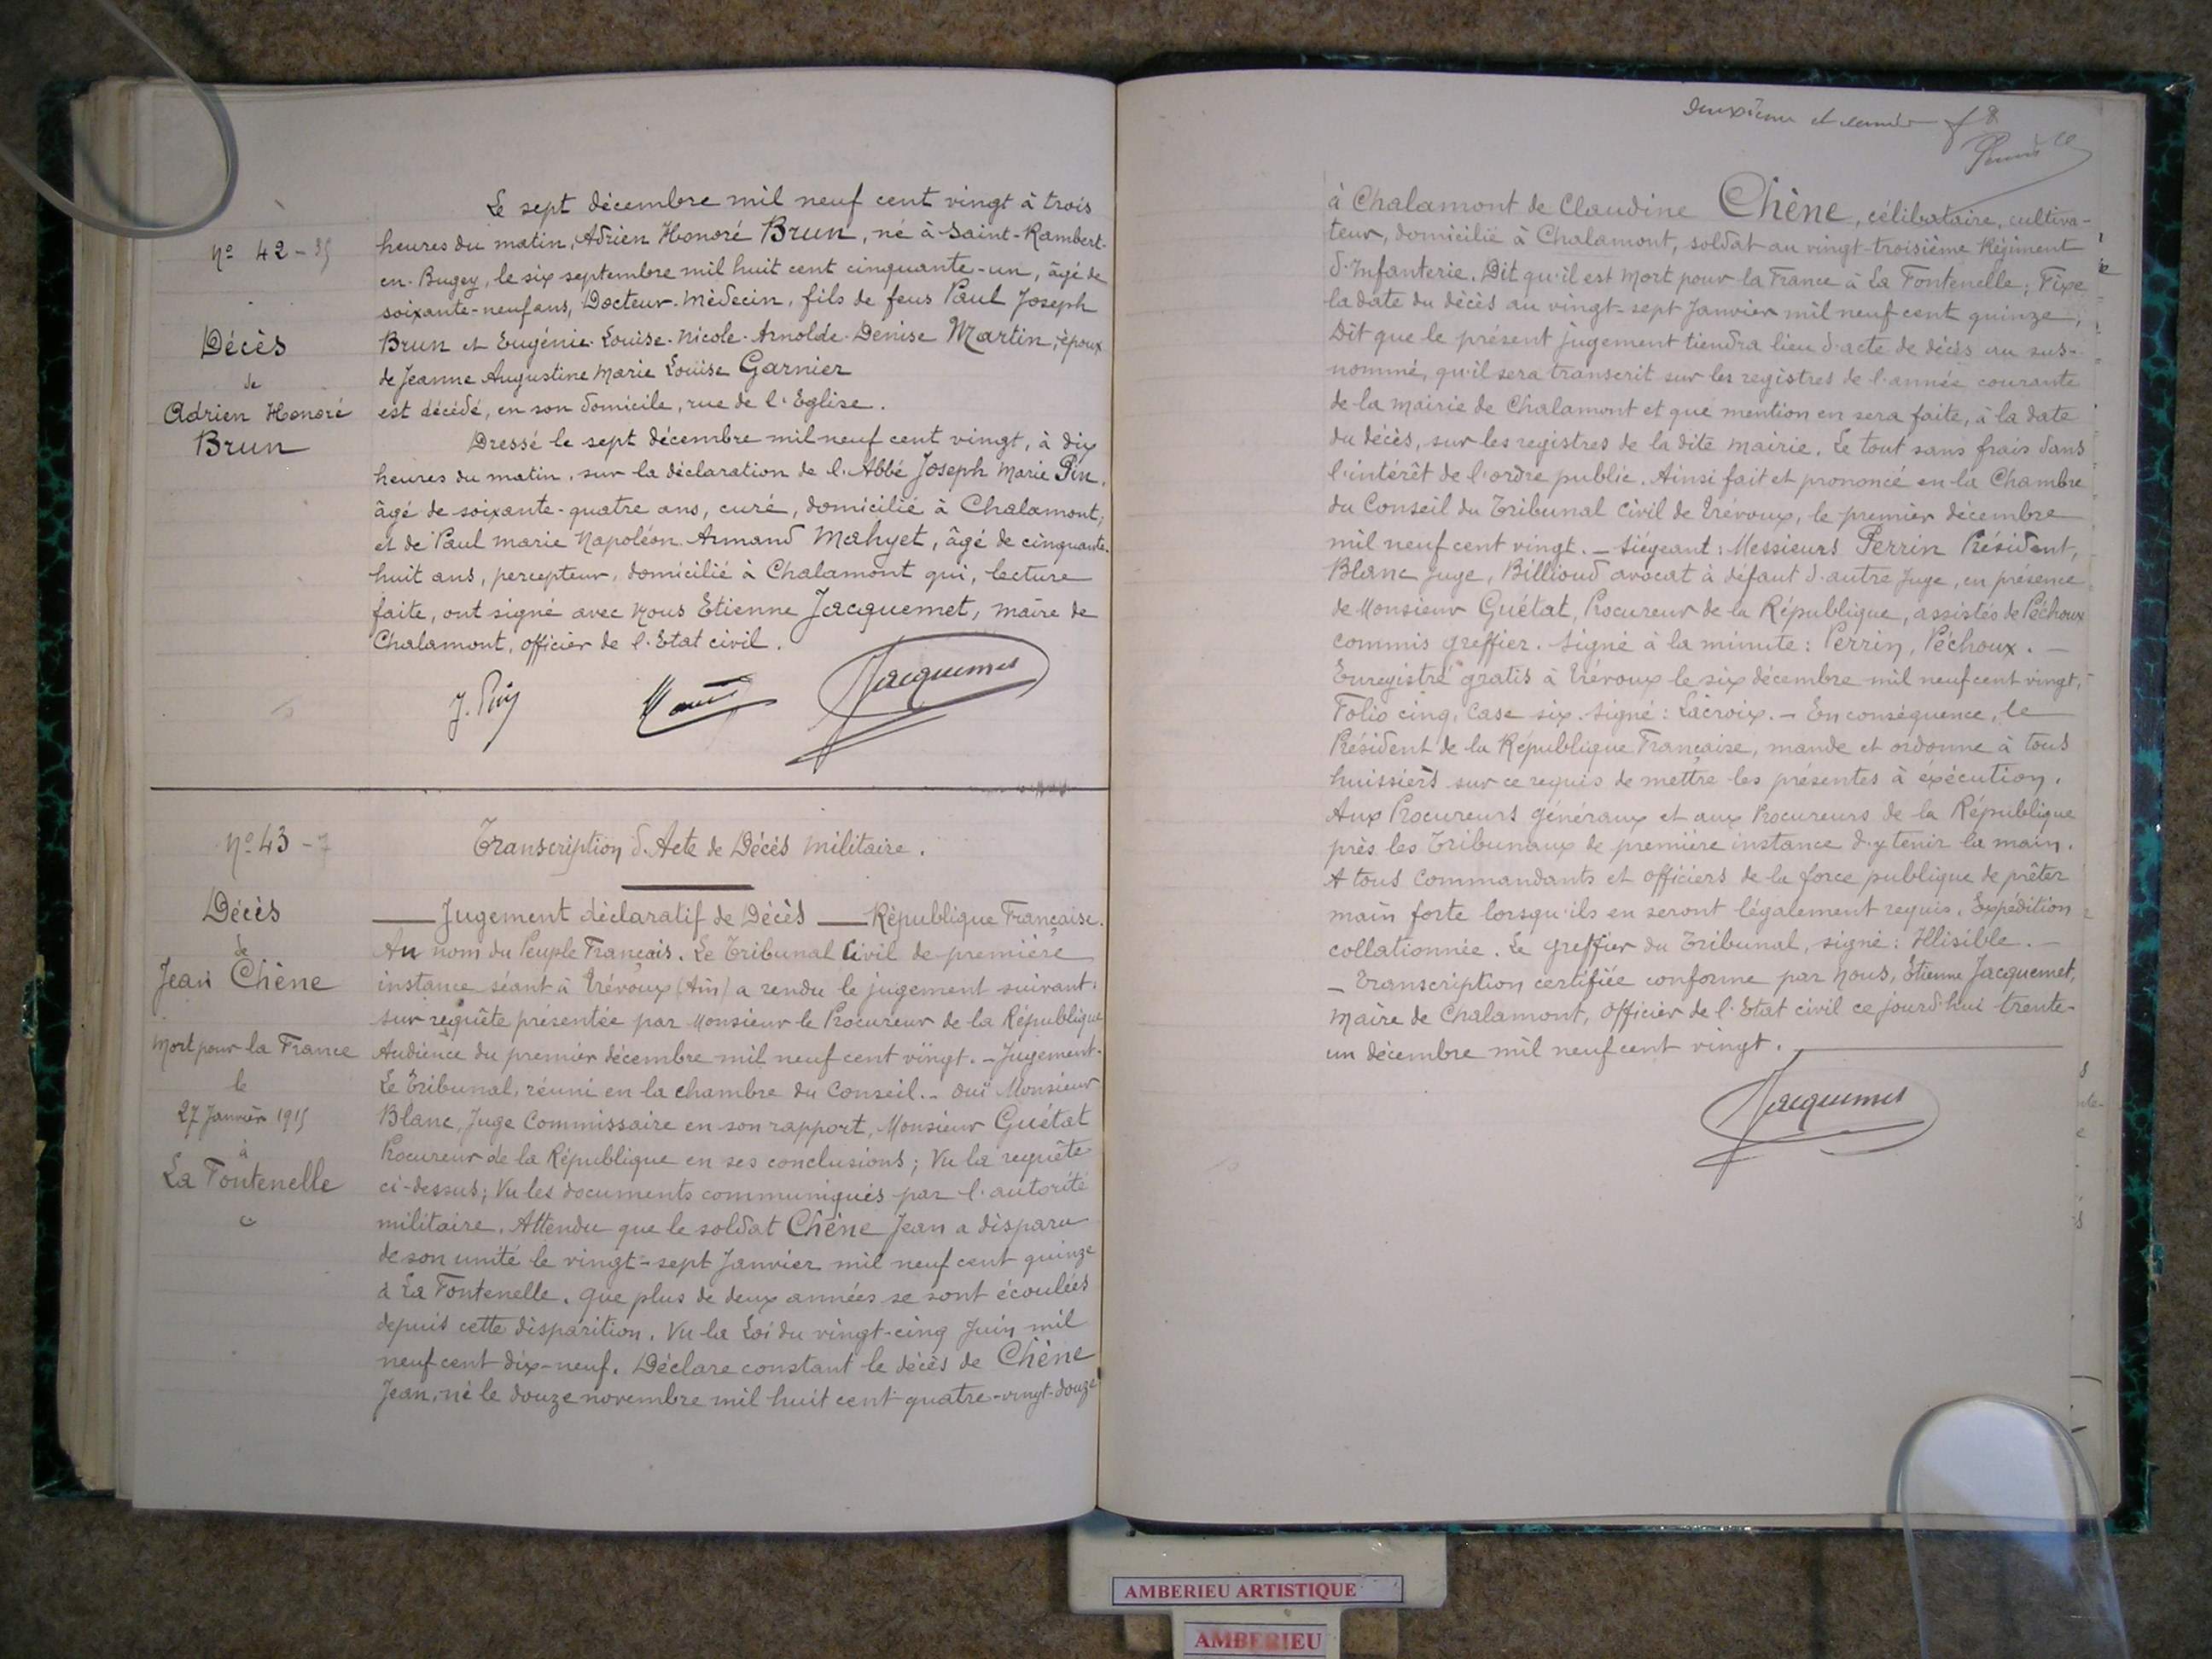 nº 42 -
Décès
de
Adrien Honoré
Brun
Le sept décembre mil neuf cent vingt à trois
heures du matin, Adrien Honoré Brun, né à Saint-Rambert-
en-Bugey, le six septembre mil huit cent cinquante-un, âgé de
soixante-neuf ans, Docteur-Médecin, fils de feus Paul Joseph
Brun et Eugénie-Louise-Nicole-Arnolde-Denise Martin, époux
de Jeanne Augustine Marie Louise Garnier
est décédé, en son domicile, rue de l'Eglise.
Dressé le sept décembre mil neuf cent vingt, à dix
heures du matin, sur la déclaration de l'Abbé Joseph Marie Pin,
âgé de soixante-quatre ans, curé, domicilié à Chalamont,
et de Paul Marie Napoléon Armand Mahyet, âgé de cinquante-
huit ans, percepteur, domicilié à Chalamont qui, lecture
faite, ont signé avec nous Etienne Jacquemet, maire de
Chalamont, officier de l'Etat civil.
J. Pin
Jacquemet
nº 43 -
Décès
de
Jean Chêne
Mort pour la France
le
27 Janvier 1915
à
La Fontenelle
Transcription d'Acte de Décès militaire.
Jugement déclaratif de Décès — République Française.
Au nom du Peuple Français. Le Tribunal Civil de première
instance séant à Trévoux (Ain) a rendu le jugement suivant:
sur requête présentée par Monsieur le Procureur de la République
Audience du premier décembre mil neuf cent vingt. - Jugement-
Le Tribunal, réuni en la chambre du Conseil.- ouï Monsieur
Blanc, Juge Commissaire en son rapport, Monsieur Guétat
Procureur de la République en ses conclusions; Vu la requête
ci-dessus; Vu les documents communiqués par l'autorité
militaire. Attendu que le soldat Chêne Jean a disparu
de son unité le vingt-sept Janvier mil neuf cent quinze
à La Fontenelle. Que plus de deux années se sont écoulées
depuis cette disparition. Vu la Loi du vingt-cinq Juin mil
neuf cent dix-neuf. Déclare constant le décès de Chêne
Jean, né le douze novembre mil huit cent quatre-vingt-douze
deuxième et dernier
à Chalamont de Claudine Chêne, célibataire, cultiva-
teur, domicilié à Chalamont, soldat au vingt-troisième Régiment
d'Infanterie. Dit qu'il est Mort pour la France à La Fontenelle; Fixe
la date du décès au vingt-sept Janvier mil neuf cent quinze;
Dit que le présent jugement tiendra lieu d'acte de décès au sus-
nommé, qu'il sera transcrit sur les registres de l'année courante
de la mairie de Chalamont et que mention en sera faite, à la date
du décès, sur les registres de la dite mairie. Le tout sans frais dans
l'intérêt de l'ordre public. Ainsi fait et prononcé en la Chambre
du Conseil du Tribunal civil de Trévoux, le premier décembre
mil neuf cent vingt. - Siégeant: Messieurs Perrin Président,
Blanc Juge, Billioud avocat à défaut d'autre Juge, en présence
de Monsieur Guétat, Procureur de la République, assistés de Péchoux
commis greffier. Signé à la minute: Perrin, Péchoux. -
Enregistré gratis à Trévoux le six décembre mil neuf cent vingt,
Folio cinq, Case six. Signé: Lacroix. - En conséquence, le
Président de la République Française, mande et ordonne à tous
huissiers sur ce requis de mettre les présentes à éxécution.
Aux Procureurs généraux et aux Procureurs de la République
près les Tribunaux de première instance d'y tenir la main.
A tous Commandants et officiers de la force publique de prêter
main forte lorsqu'ils en seront légalement requis. Expédition
collationnée. Le greffier du Tribunal, signé: Illisible. -
- Transcription certifiée conforme par Nous, Etienne Jacquemet,
Maire de Chalamont, Officier de l'Etat civil ce jourd'hui trente-
un décembre mil neuf cent vingt.
Jacquemet
AMBERIEU ARTISTIQUE
AMBERIEU